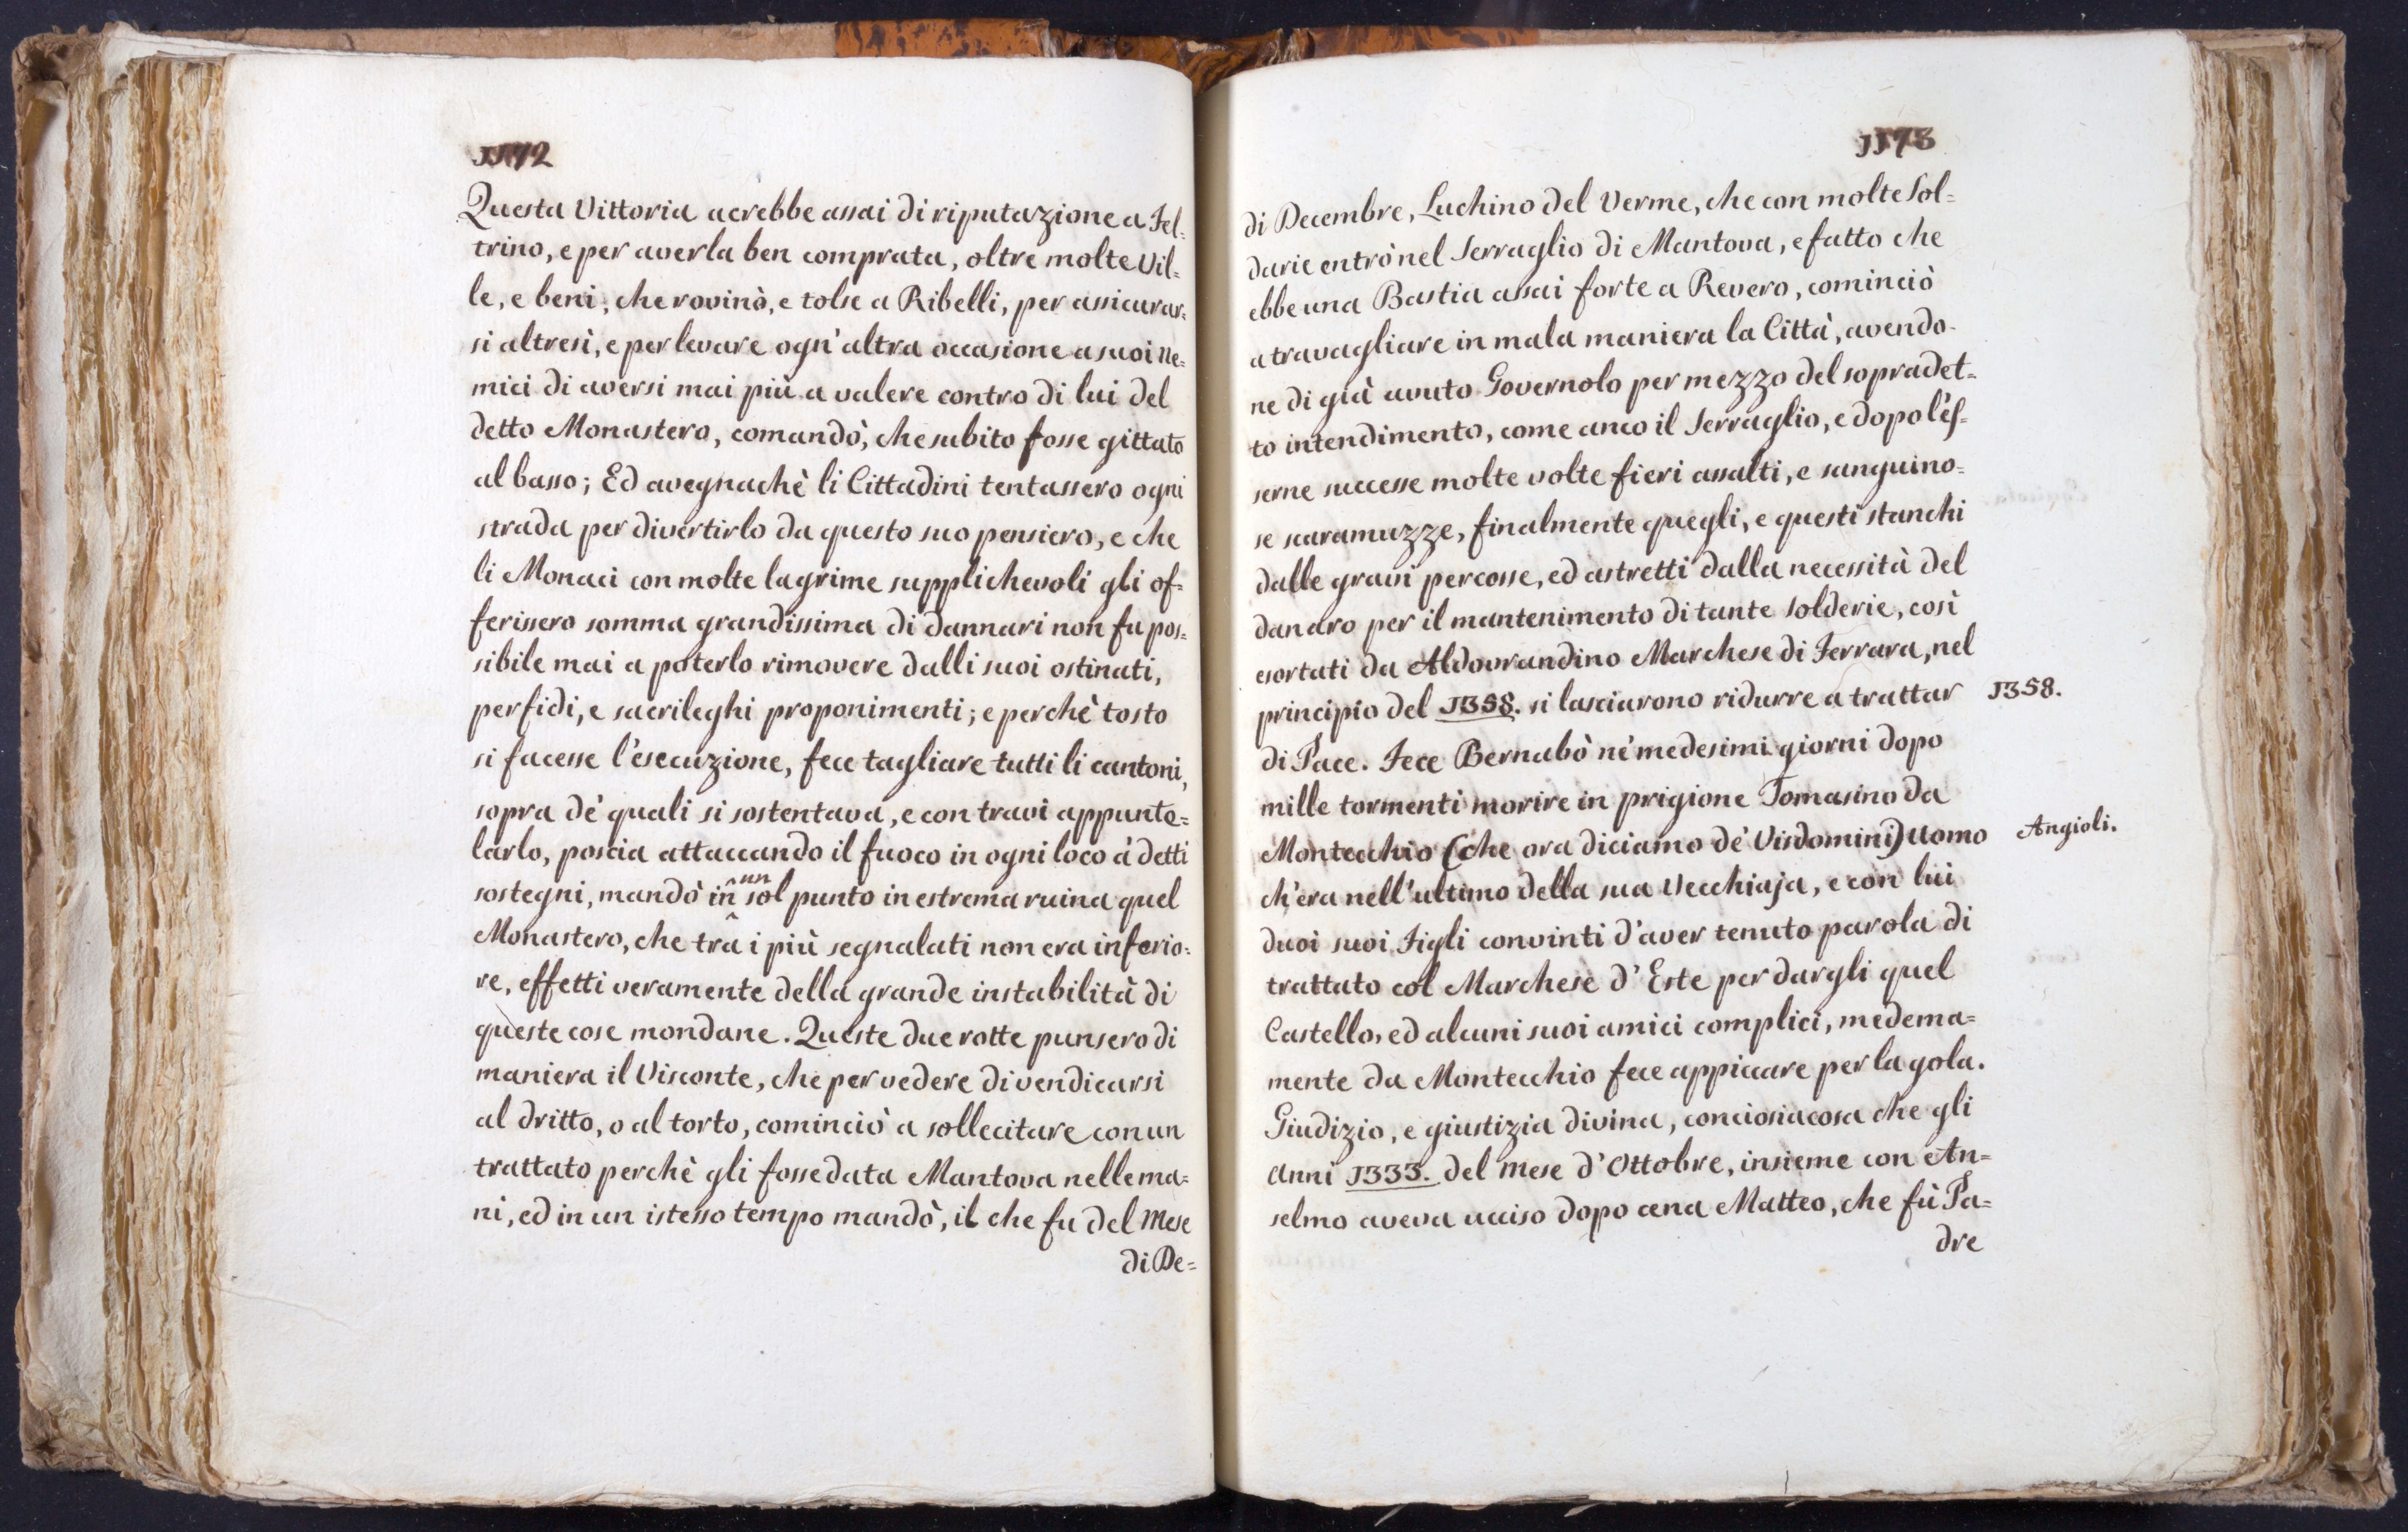 1172
Questa Vittoria acrebbe assai di riputazione a Fel=
trino, e per averla ben comprata, oltre molte Vil=
le, e beni, che rovinò, e tolse a Ribelli, per assicurar=
si altresì, e per levare ogn'altra occasione a suoi Ne=
mici di aversi mai più a valere contro di lui del
detto Monastero, comandò, che subito fosse gittato
al basso; Ed avegnachè li Cittadini tentassero ogni
strada per divertirlo da questo suo pensiero, e che
li Monaci con molte lagrime supplichevoli gli of=
ferissero somma grandissima di dannari non fu pos=
sibile mai a poterlo rimovere dalli suoi ostinati,
perfidi, e sacrileghi proponimenti; e perchè tosto
si facesse l'esecuzione, fece tagliare tutti li cantoni,
sopra de' quali si sostentava, e con travi appunte=
larlo, poscia attaccando il fuoco in ogni loco à detti
sostegni, mandò in un sol punto in estrema ruina quel
Monastero, che tra i più segnalati non era inferio=
re, effetti veramente della grande instabilità di
queste cose mondane. Queste due rotte punsero di
maniera il Visconte, che per vedere di vendicarsi
al dritto, o al torto, cominciò a sollecitare con un
trattato perchè gli fosse data Mantova nelle ma=
ni, ed in un istesso tempo mandò, il che fu del Mese
di De=
1173
di Decembre, Luchino del Verme, che con molte Sol=
darie entrò nel Serraglio di Mantova, e fatto che
ebbe una Bastia assai forte a Revero, cominciò
a travagliare in mala maniera la Città, avendo-
ne di già avuto Governolo per mezzo del sopradet=
to intendimento, come anco il Serraglio, e dopo l'es=
serne successe molte volte fieri assalti, e sanguino=
se scaramuzze, finalmente quegli, e questi stanchi
dalle gravi percosse, ed astretti dalla necessità del
danaro per il mantenimento di tante solderie, così
esortati da Aldovrandino Marchese di Ferrara, nel
principio del 1358. si lasciarono ridurre a trattar 1358.
di Pace. Fece Bernabò ne' medesimi giorni dopo
mille tormenti morire in prigione Tomasino da
Montecchio (che ora diciamo de' Visdomini) uomo Angioli.
ch'era nell'ultimo della sua Vecchiaja, e con lui
duoi suoi Figli convinti d'aver tenuto parola di
trattato col Marchese d'Este per dargli quel
Castello, ed alcuni suoi amici complici, medema=
mente da Montecchio fece appiccare per la gola.
Giudizio, e giustizia divina, conciosiacosa che gli
Anni 1333. del Mese d'Ottobre, insieme con An=
selmo aveva ucciso dopo cena Matteo, che fù Pa=
dre